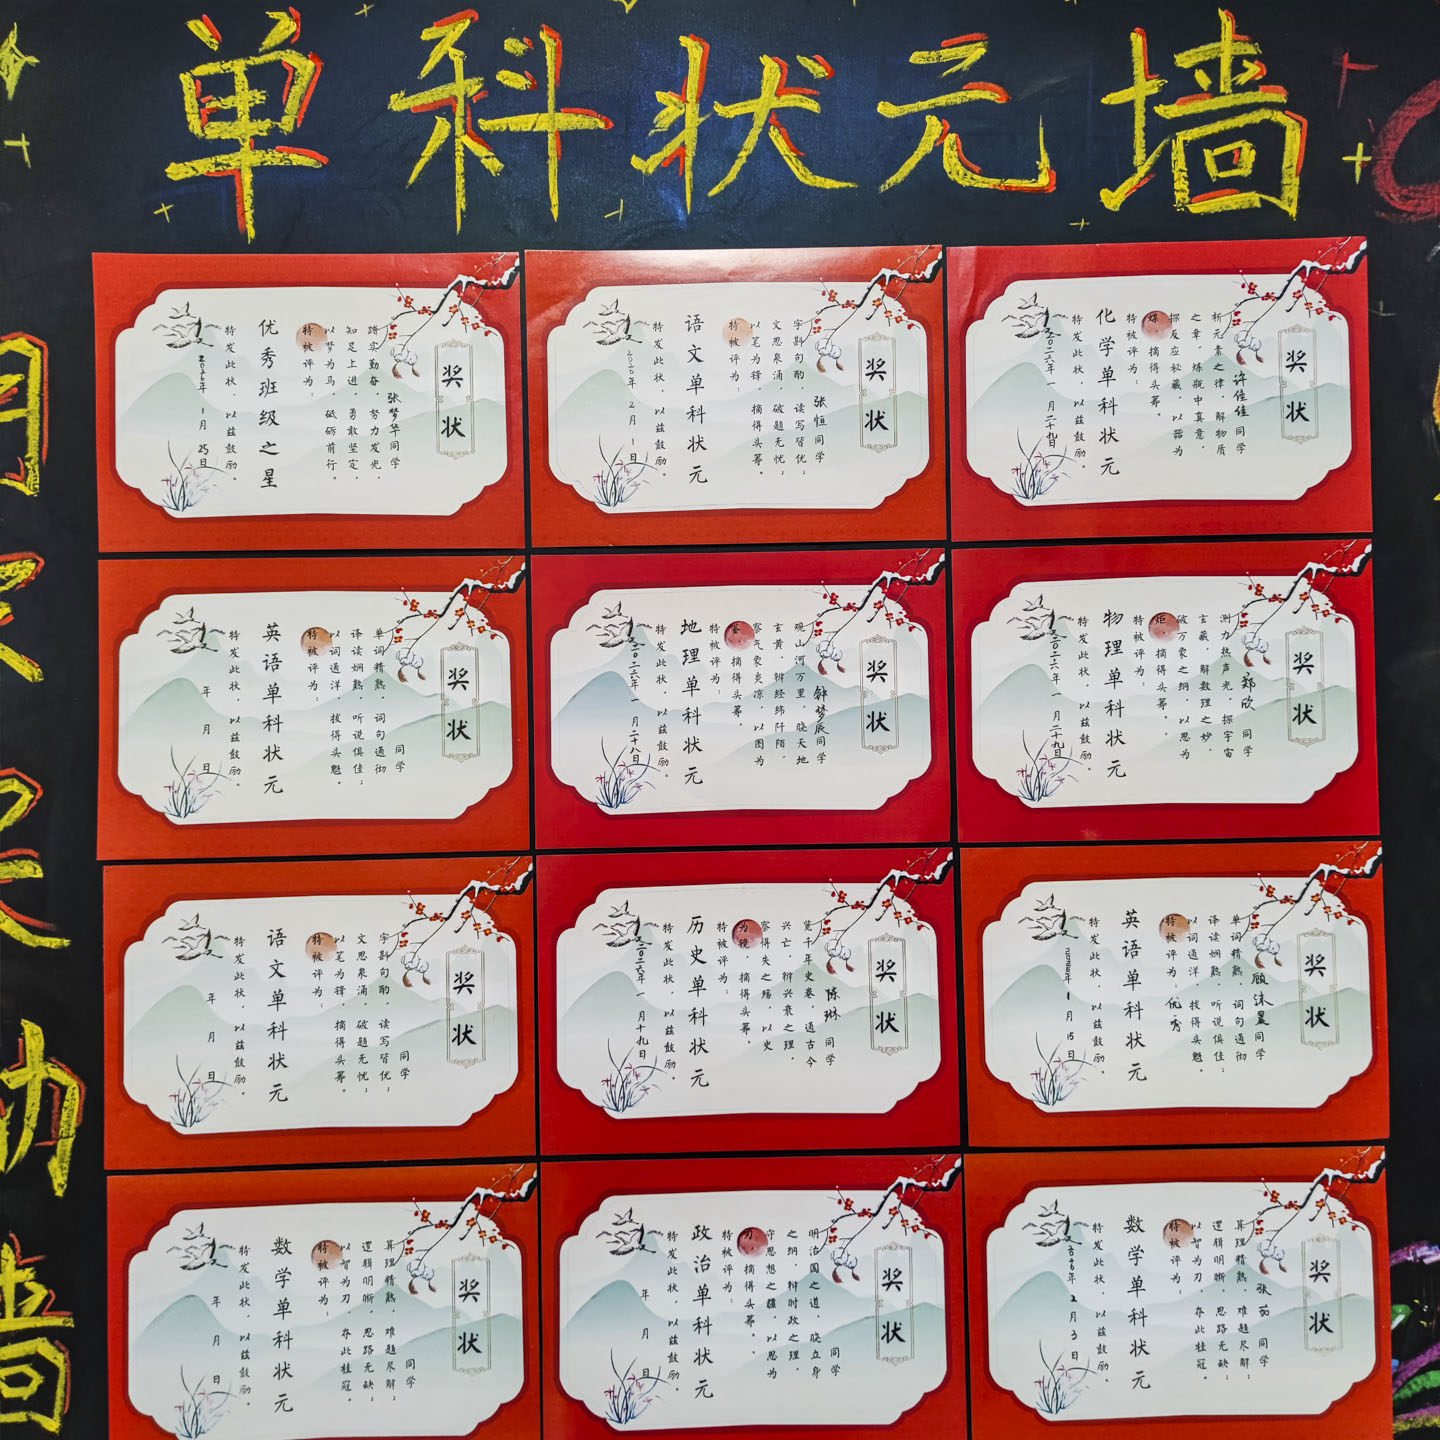 单科状元墙
奖状
张梦华同学
踏实勤奋，努力发光，
知足上进，勇敢坚定，
以梦为马，砥砺前行。
特被评为：
优秀班级之星
特发此状，以兹鼓励。
1月25日
奖状
张恒同学
字斟句酌，读写皆优；
文思泉涌，破题无忧；
以笔为锋，摘得头筹。
特被评为：
语文单科状元
特发此状，以兹鼓励。
2026年2月1日
奖状
许佳佳同学
析元素之律，解物质
之章，炼瓶中真意，
探反应秘藏，以器为
媒，摘得头筹。
特被评为：
化学单科状元
特发此状，以兹鼓励。
二〇二六年一月二十九日
奖状
同学
单词精熟，词句通彻
译读娴熟，听说俱佳；
以词通洋，拔得头魁。
特被评为：
英语单科状元
特发此状，以兹鼓励。
年月日
奖状
钟梦辰同学
观山河万里，晓天地
玄黄，辨经纬阡陌，
察气象炎凉，以图为
鉴，摘得头筹。
特被评为：
地理单科状元
特发此状，以兹鼓励。
二〇二六年一月二十八日
奖状
郑欣同学
测力热声光，探宇宙
玄藏，解数理之妙，
破万象之纲，以思为
炬，摘得头筹。
特被评为：
物理单科状元
特发此状，以兹鼓励。
二〇二六年一月二十九日
奖状
同学
字斟句酌，读写皆优；
文思泉涌，破题无忧；
以笔为锋，摘得头筹。
特被评为：
语文单科状元
特发此状，以兹鼓励。
年月日
奖状
陈琳同学
览千年史卷，通古今
兴亡，辨兴衰之理，
察得失之殇，以史
为镜，摘得头筹。
特被评为：
历史单科状元
特发此状，以兹鼓励。
二〇二六年一月十九日
奖状
顾沫晨同学
单词精熟，词句通彻
译读娴熟，听说俱佳；
以词通洋，拔得头魁。
特被评为：优秀
英语单科状元
特发此状，以兹鼓励。
1月15日
奖状
同学
算理精熟，难题尽解；
逻辑明晰，思路无缺；
以智为刃，夺此桂冠。
特被评为：
数学单科状元
特发此状，以兹鼓励。
年月日
奖状
同学
明治国之道，晓立身
之纲，辩时政之理，
守思想之疆，以思为
刃，摘得头筹。
特被评为：
政治单科状元
特发此状，以兹鼓励。
年月日
奖状
张茹同学
算理精熟，难题尽解；
逻辑明晰，思路无缺；
以智为刃，夺此桂冠。
特被评为：
数学单科状元
特发此状，以兹鼓励。
2026年2月3日